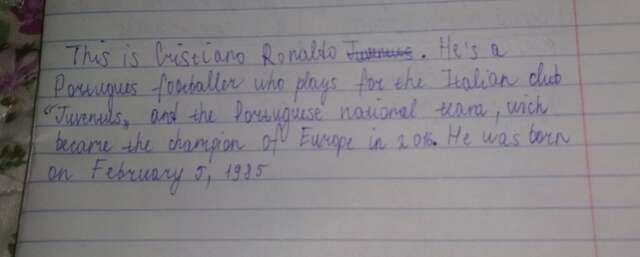 This is Cristiano Ronaldo Juventus. He's a
Portugues footballer who plays for the Italian club
"Juventus„ and the Portuguese national team, wich
became the champion of Europe in 2016. He was born
on February 5, 1985